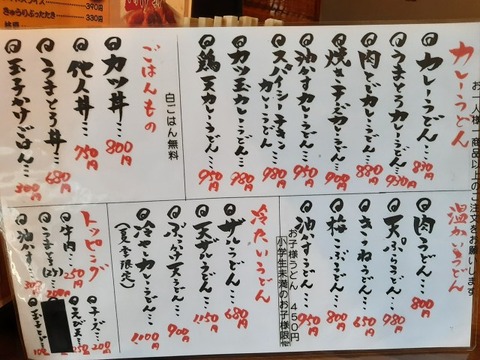 390円
きゅうりぶったたき
330円
お一人様一商品以上のご注文をお願いします
カレーうどん
カレーうどん…830
うまとろカレーうどん…930
肉とじカレーうどん…880
焼き子ーズカレーうどん…900
油かすカレーうどん…950
スパイシー牛すじカレーうどん…980
カツ玉カレーうどん…980
鶏天カレーうどん…950
白ごはん無料
ごはんもの
カツ丼…800
他人丼…750
うまとろ丼…680
玉子かけごはん…300
温かいうどん
肉うどん…800
天ぷらうどん…980
きつねうどん…650
梅こぶうどん…800
油かすうどん…950
お子様うどん 450円
小学生未満のお子様限定
冷たいうどん
ザルうどん…680
天ザルうどん…1150
ぶっかけ天うどん…900
冷やカレーうどん…1000
(夏季限定)
トッピング
牛肉…250
うまとろ
油かす…300
チーズ…200
えび天…250
玉子とじ…